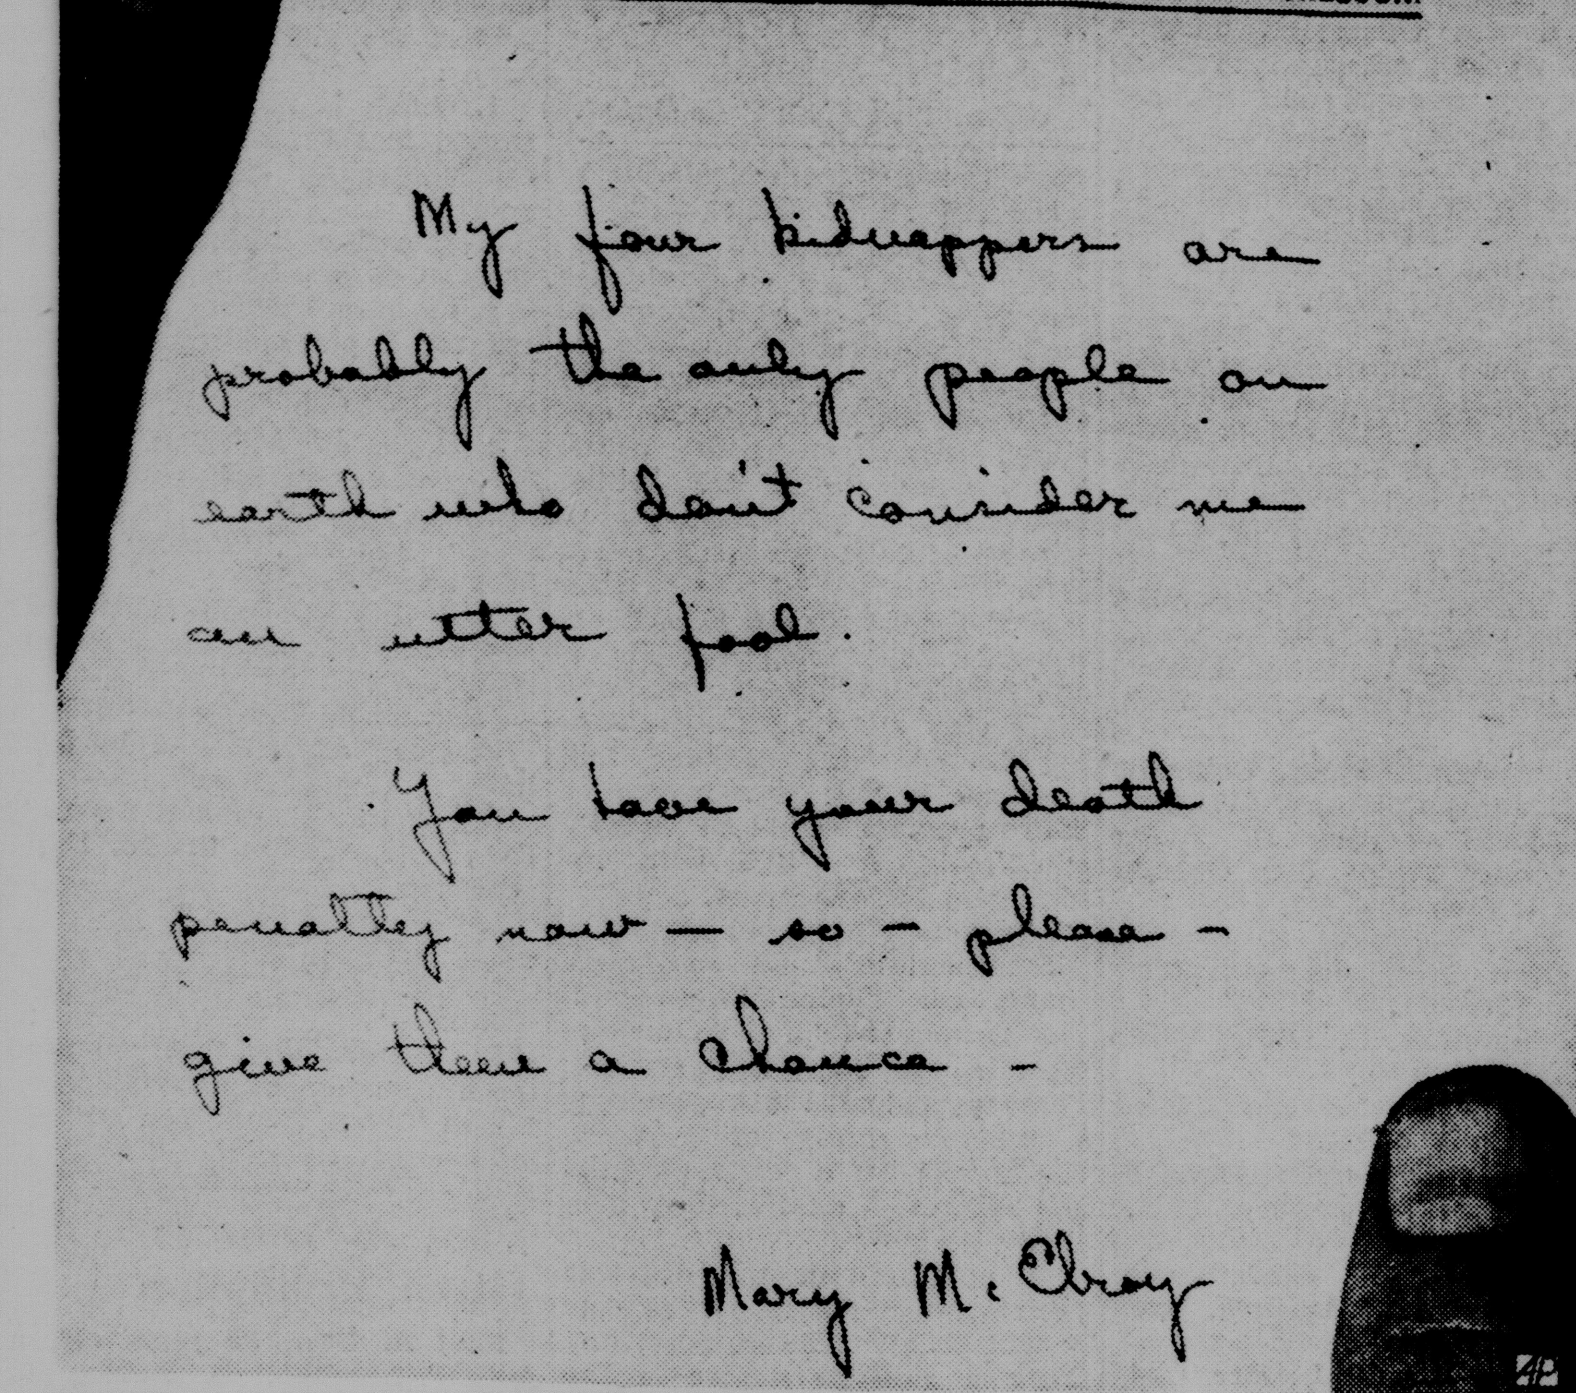 My four kidnappers are
probably the only people on
earth who don't consider me
an utter fool.
You have your death
penalty now — so — please —
give them a chance —
Mary McElroy